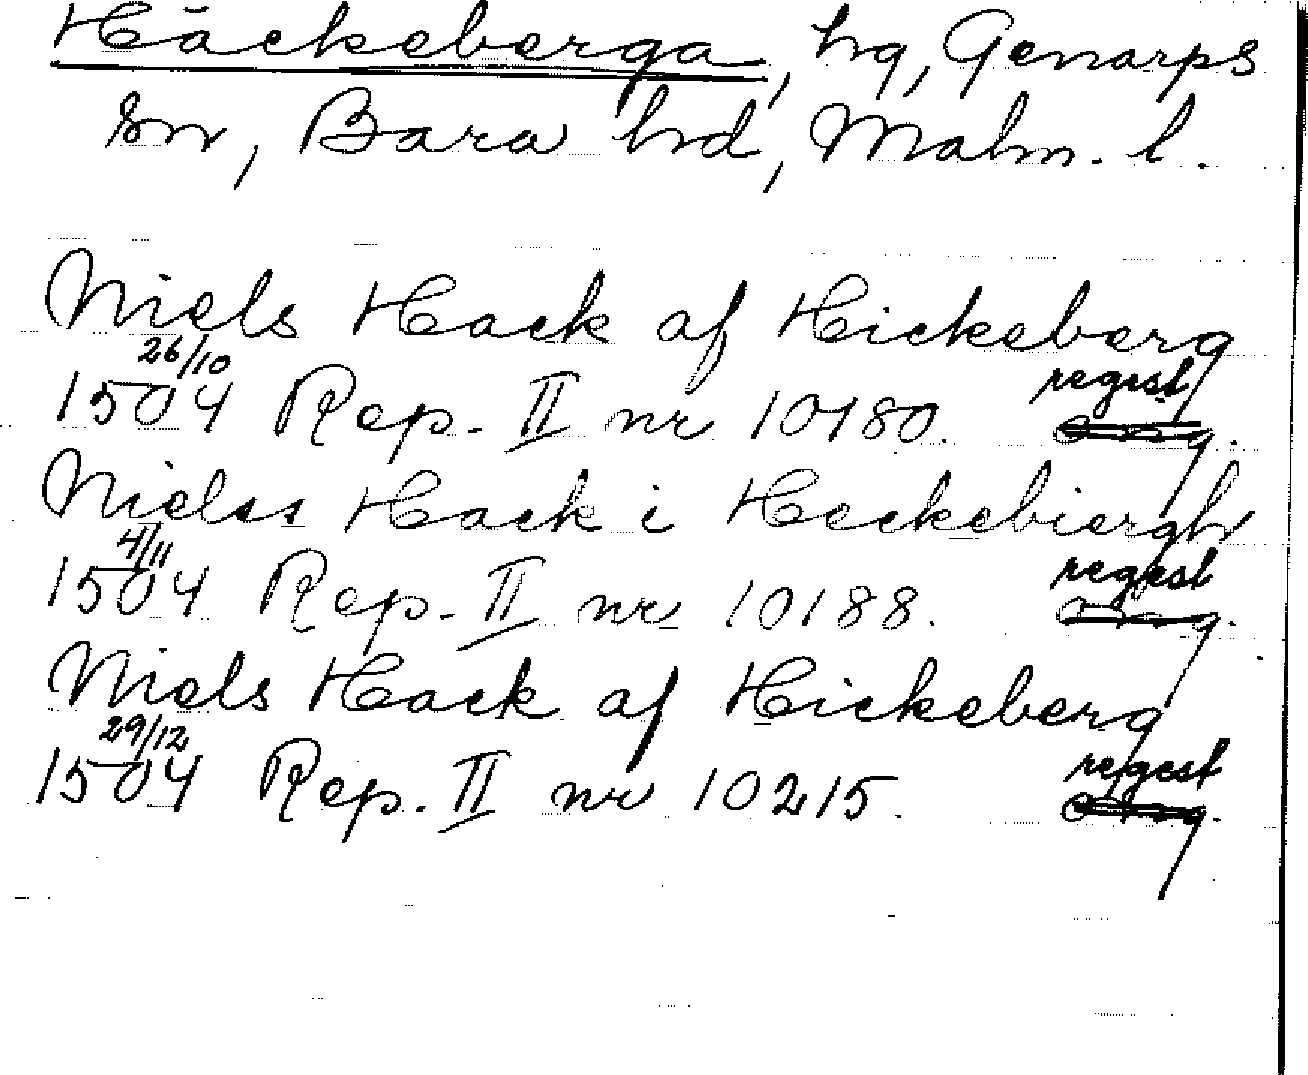 Häckeberga, hg, Genarps
sn, Bara hd, Malm. l.
Niels Hack af Hickeberg
26/10
1504 Rep. II nr 10180. regest
orig.
Nielss Hack i Heckebiergh
4/11
1504 Rep. II nr 10188. regest
orig.
Niels Hack af Hickeberg
29/12
1504 Rep. II nr 10215. regest
orig.